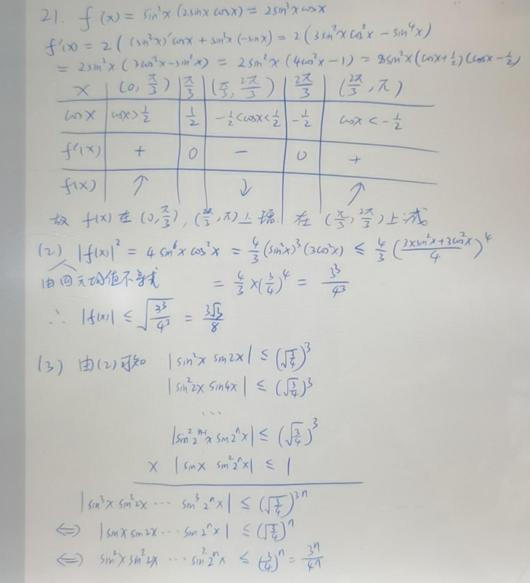 21. f(x) = sin²x(2sinx cosx) = 2sin³x cosx
f'(x) = 2((sin³x)'cosx + sin³x(-sinx)) = 2(3sin²x cos²x - sin⁴x)
= 2sin²x(3cos²x - sin²x) = 2sin²x(4cos²x - 1) = 8sin²x(cosx + 1/2)(cosx - 1/2)
x (0, π/3) π/3 (π/3, 2π/3) 2π/3 (2π/3, π)
cosx cosx > 1/2 1/2 -1/2 < cosx < 1/2 -1/2 cosx < -1/2
f'(x) + 0 - 0 +
f(x) ↑ ↓ ↑
故 f(x) 在 (0, π/3), (2π/3, π) 上增 在 (π/3, 2π/3) 上减
(2) |f(x)|² = 4sin⁶x cos²x = 4/3 (sin²x)³(3cos²x) ≤ 4/3 ((3×sin²x + 3cos²x)/4)⁴
由四元均值不等式 = 4/3 × (3/4)⁴ = 3³/4³
∴ |f(x)| ≤ √(3³/4³) = 3√3/8
(3) 由(2)可知 |sin²x sin2x| ≤ (√(3/4))³
|sin²2x sin4x| ≤ (√(3/4))³
...
|sin²2ⁿ⁻¹x sin2ⁿx| ≤ (√(3/4))³
× |sinx sin²2ⁿx| ≤ 1
|sin³x sin³2x ... sin³2ⁿx| ≤ (√(3/4))³ⁿ
⇔ |sinx sin2x ... sin2ⁿx| ≤ (√(3/4))ⁿ
⇔ sin²x sin²2x ... sin²2ⁿx ≤ (3/4)ⁿ = 3ⁿ/4ⁿ